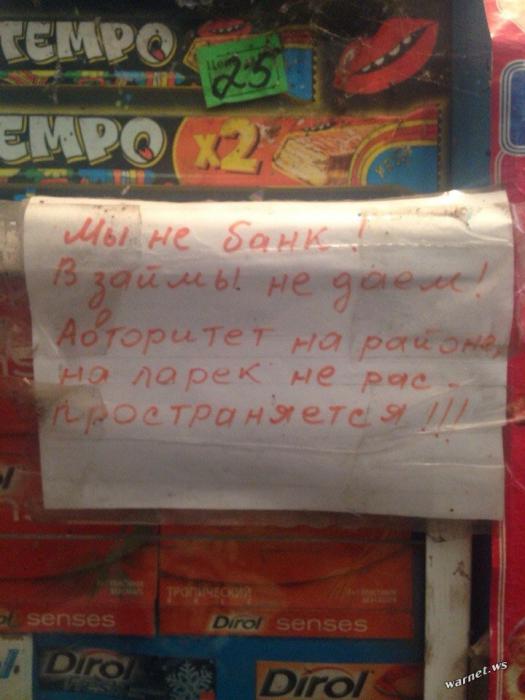 TEMPO
25
TEMPO
x2
Мы не банк!
В займы не даем!
Авторитет на районе,
на ларек не рас-
пространяется!!!
ТРОПИЧЕСКИЙ
senses
Dirol senses
Dirol
Dirol
warnet.ws